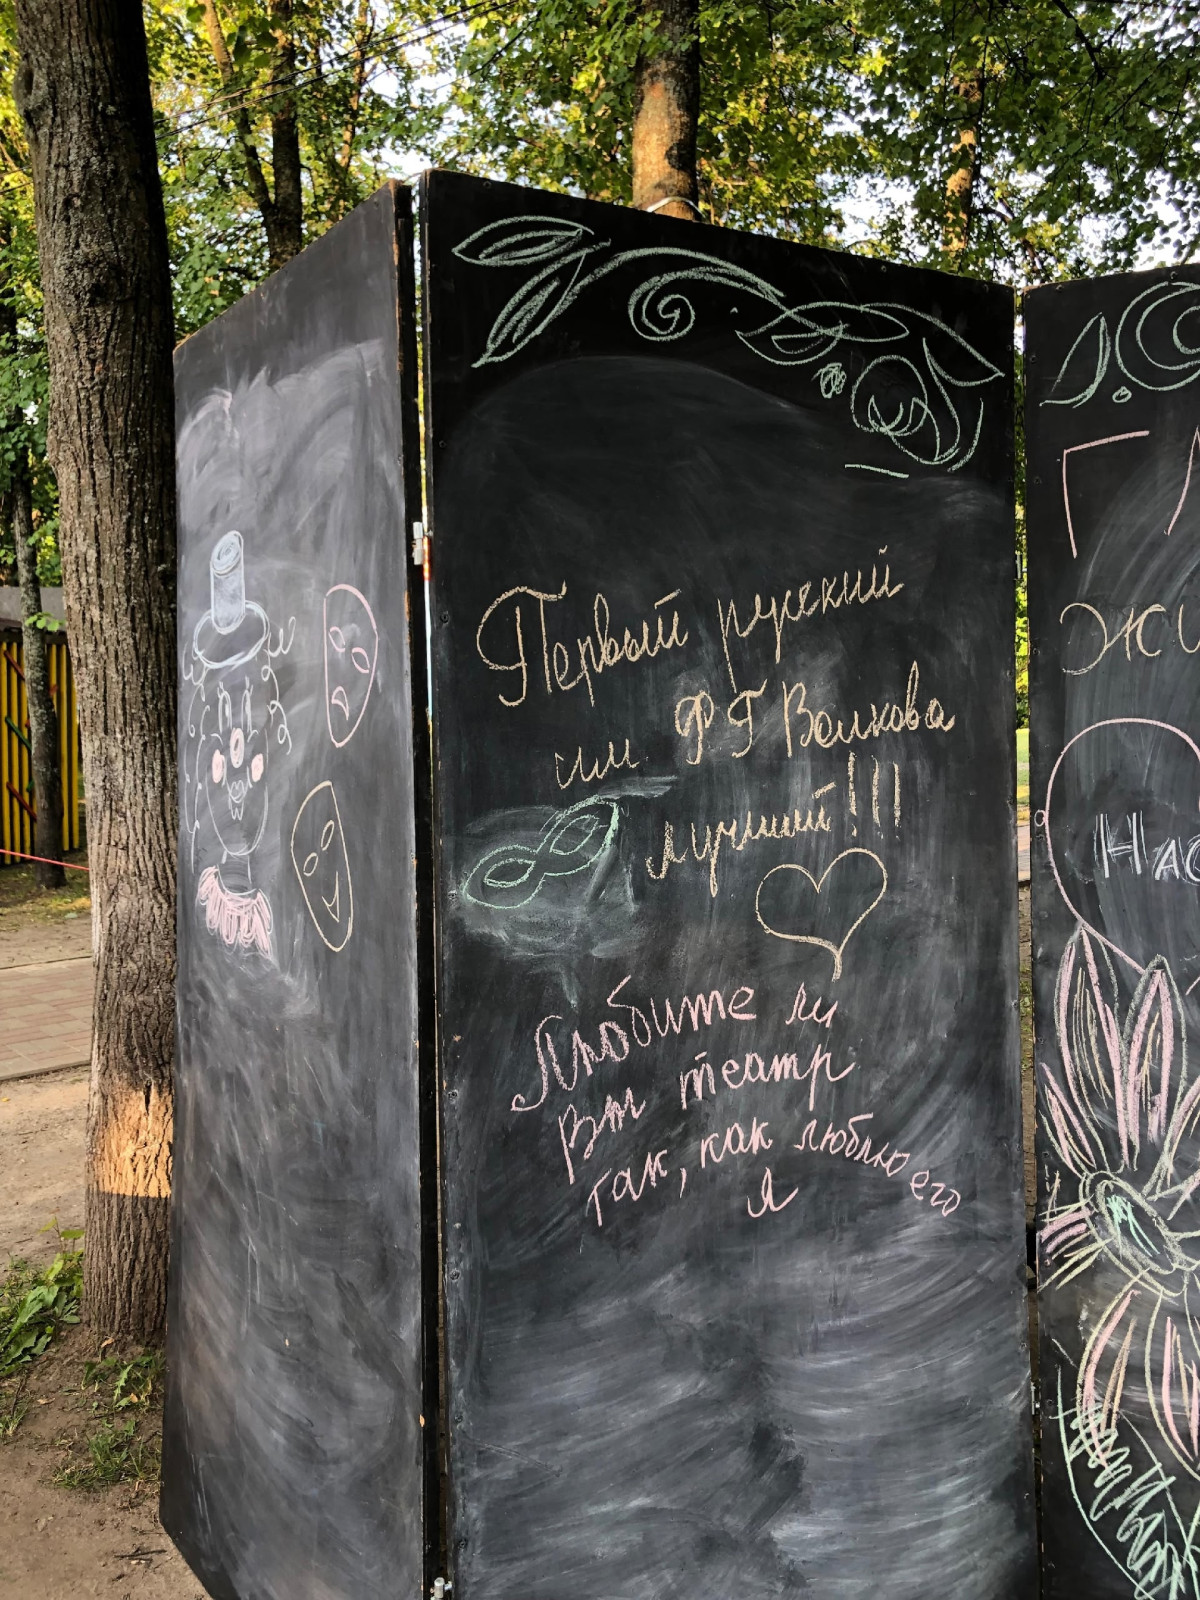 Первый русский
им. Ф Г Волкова
лучший!!!
Любите ли
Вы театр
так, как люблю его
я
ЖИ
Нас